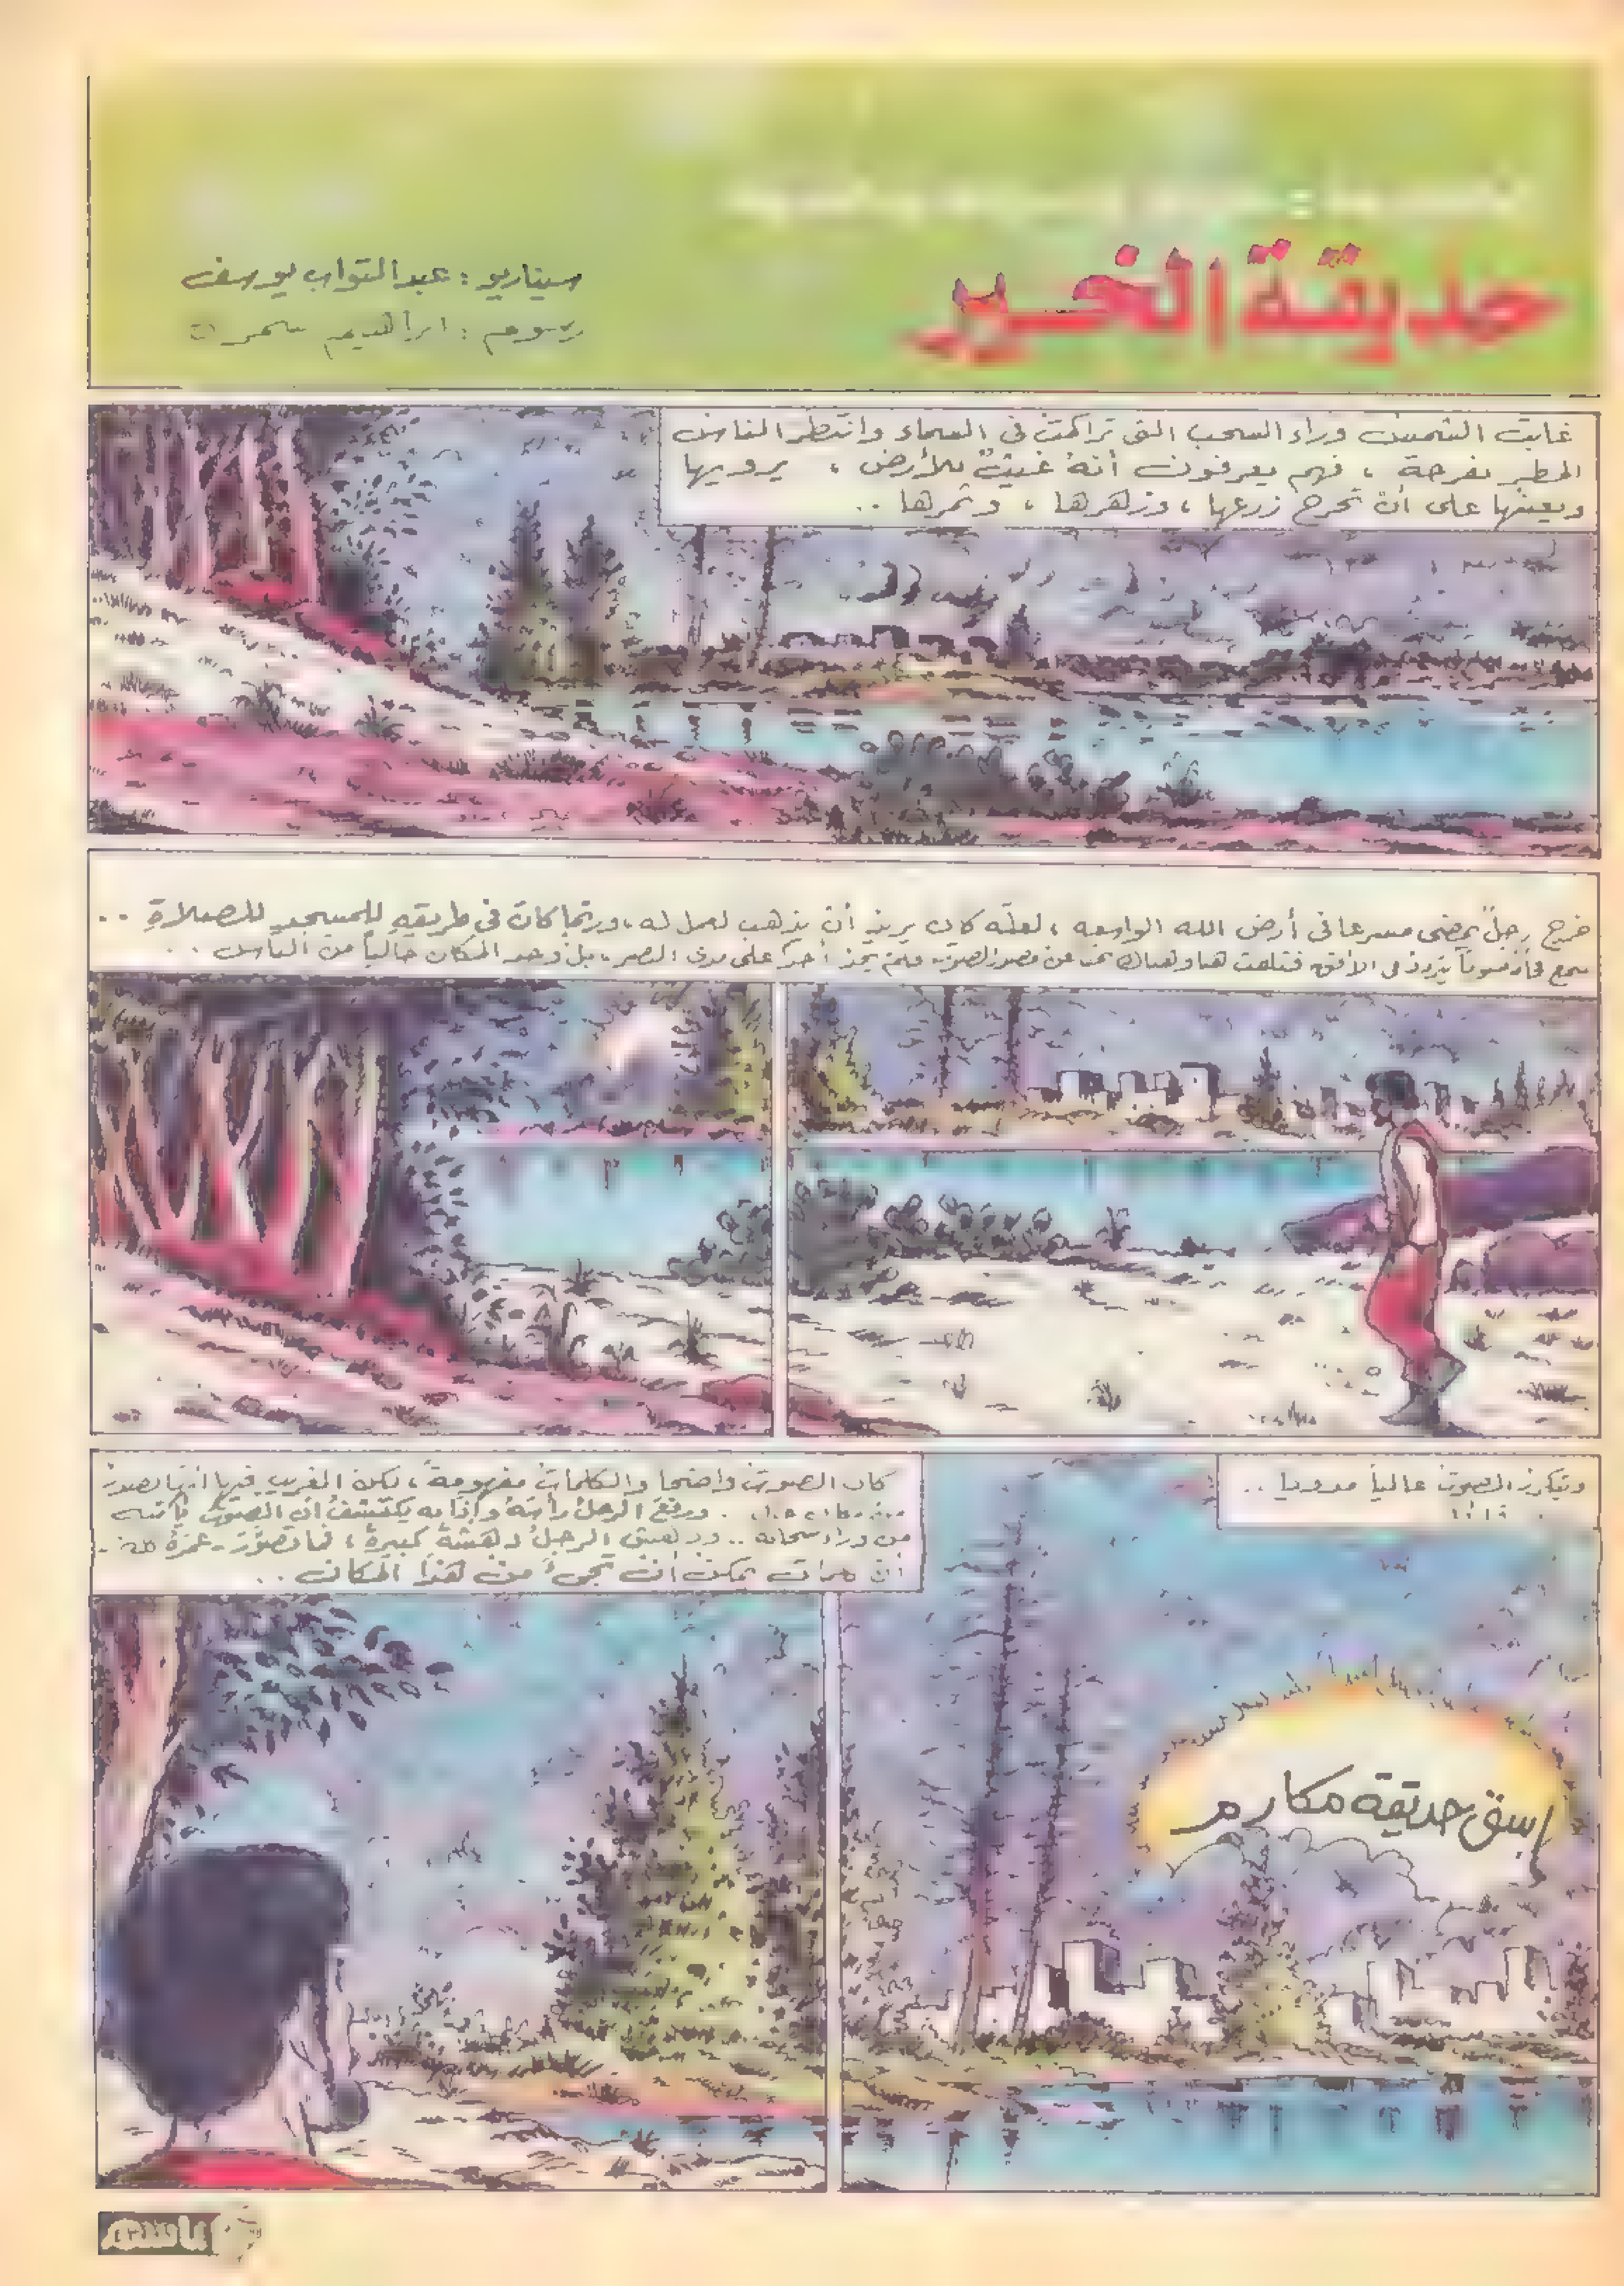 حديقة الخير
سيناريو : عبدالتواب يوسف
رسوم : ابراهيم سمرة
غابت الشمس وراء السحب التى تراكمت فى السماء وانتظر الناس
المطر بفرحة ، فهم يعرفون أنه غيثٌ للأرض ، يرويها
ويعينها على أن تخرج زرعها ، وزهرها ، وثمرها ..
خرج رجلٌ يمضى مسرعا فى أرض الله الواسعه ، لعلّه كان يريد أن يذهب لعمل له ، وربّما كان فى طريقهِ للمسجدِ للصلاةِ ..
سمع فجأة صوتاً يتردد فى الأفق فتلفت هنا وهناك بحثا عن مصدر الصوت فلم يجد أحداً على مدى البصر ، بل وجد المكان خالياً من الناس ..
وتكرر الصوت عالياً مدويا ..
قائلا
إسق حديقة مكارم
كان الصوت واضحا والكلمات مفهومةً ، لكن الغريب فيها أنها تصدر
ورفع الرجلُ رأسَهُ وإذا به يكتشفُ أن الصوتَ يأتيه
من وراء سحابه .. ودهش الرجلُ دهشةً كبيرةً ، فما تصوّرَ
أن يمكن أن تجىءَ من هذا المكان ..
باسم